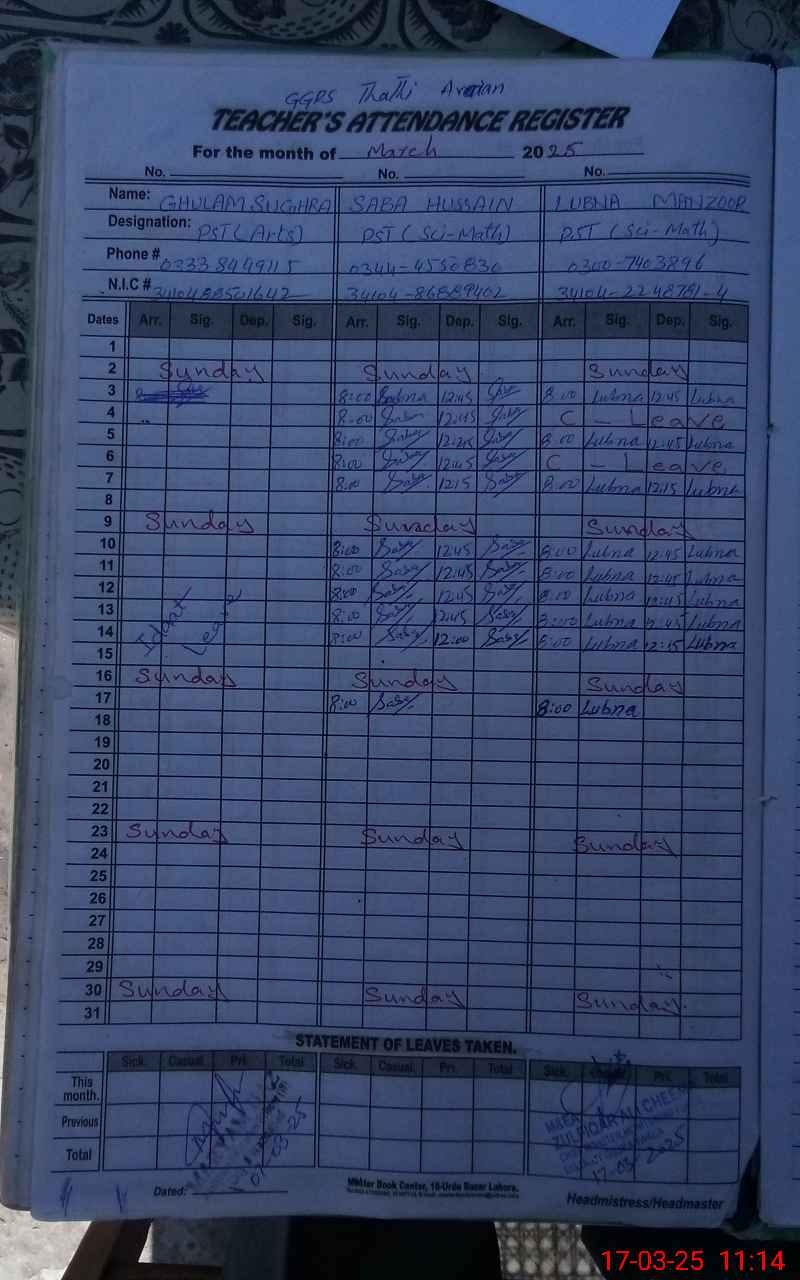 GGPS Thathi Araian
TEACHER'S ATTENDANCE REGISTER
For the month of March 2025
No. No. No.
Name: GHULAM SUGHRA SABA HUSSAIN LUBNA MANZOOR
Designation: PST (Arts) PST (Sci-Math) PST (Sci-Math)
Phone # 0333 8449115 0344-4550830 0300-7403896
N.I.C # 34104-86889402 34104-2248781-4
Dates Arr. Sig. Dep. Sig. Arr. Sig. Dep. Sig. Arr. Sig. Dep. Sig.
1
2 Sunday Sunday Sunday
3 8:00 Sabna 12:45 Saba 8:00 Lubna 12:45 Lubna
4 8:00 Saba 12:45 Saba C - Leave
5 8:00 Saba 12:45 Saba 8:00 Lubna 12:45 Lubna
6 8:00 Saba 12:45 Saba C - Leave
7 8:00 Saba 12:15 Saba 8:00 Lubna 12:15 Lubna
8
9 Sunday Sunday Sunday
10 8:00 Saba 12:45 Saba 8:00 Lubna 12:45 Lubna
11 8:00 Saba 12:45 Saba 8:00 Lubna 12:45 Lubna
12 8:00 Saba 12:45 Saba 8:00 Lubna 12:45 Lubna
13 8:00 Saba 12:45 Saba 8:00 Lubna 12:45 Lubna
14 Leave 8:00 Saba 12:00 Saba 8:00 Lubna 12:15 Lubna
15
16 Sunday Sunday Sunday
17 8:00 Saba 8:00 Lubna
18
19
20
21
22
23 Sunday Sunday Sunday
24
25
26
27
28
29
30 Sunday Sunday Sunday
31
STATEMENT OF LEAVES TAKEN.
Sick. Casual. Pri. Total Sick. Casual. Pri. Total Sick. Pri. Total
This month.
Previous
Total
07-03-25
ZULFIQAR ALI CHEE
17-03-2025
Dated:
Master Book Center, 18-Urdu Bazar Lahore.
Headmistress/Headmaster
17-03-25 11:14